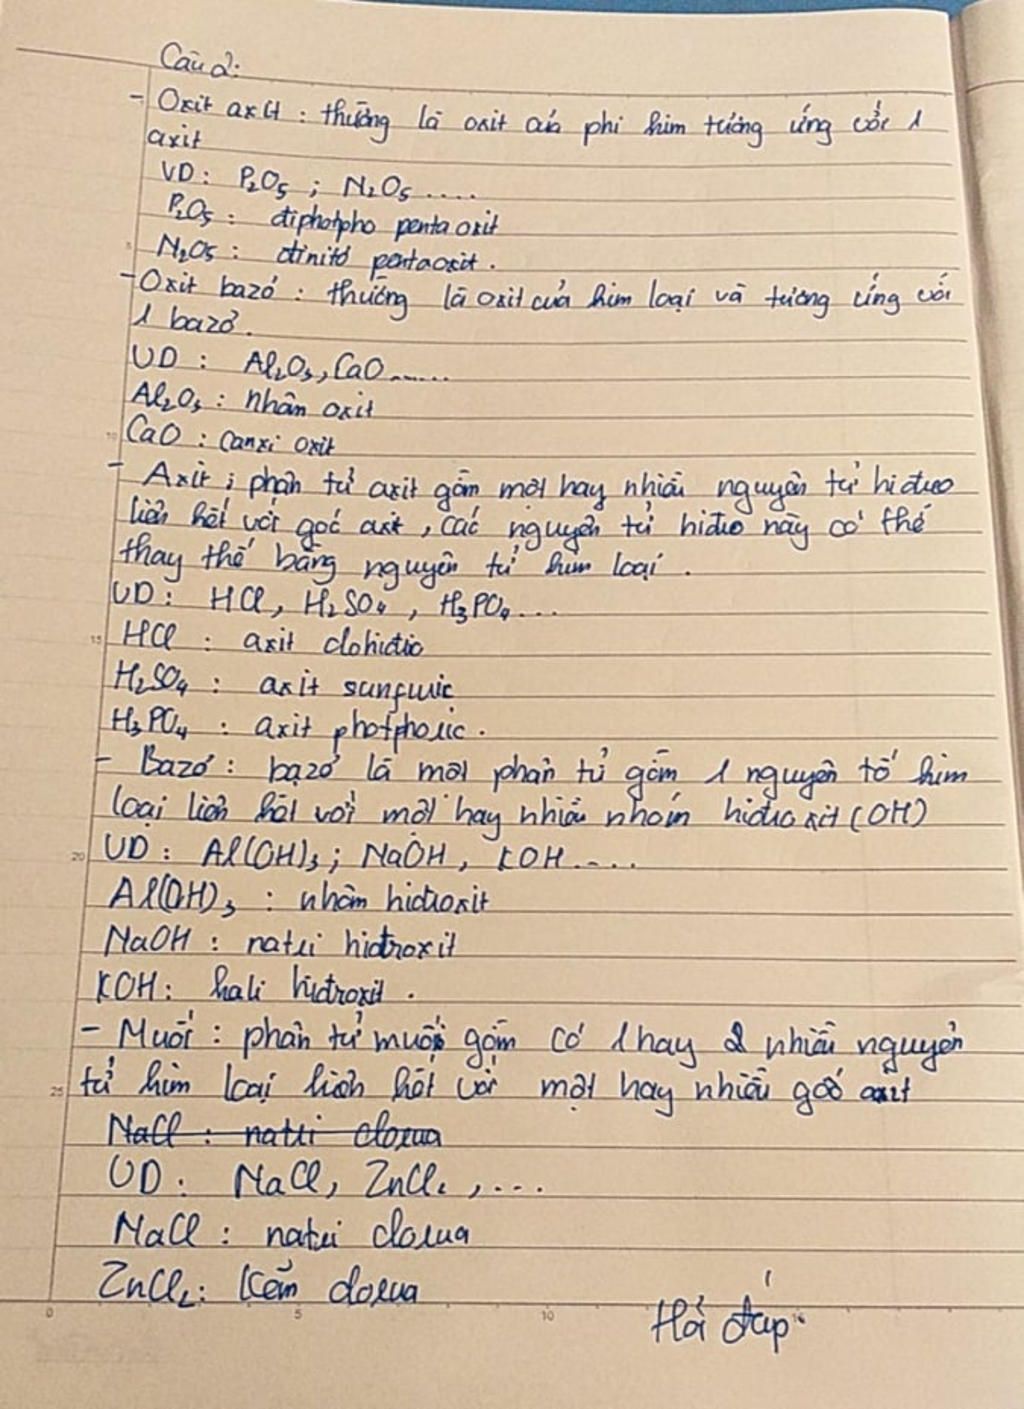 Câu 2:
- Oxit axit : thường là oxit của phi kim tương ứng với 1
axit
VD : P₂O₅ ; N₂O₅ ....
P₂O₅ : điphotpho penta oxit
N₂O₅ : đinitơ pentaoxit .
- Oxit bazơ : thường là oxit của kim loại và tương ứng với
1 bazơ .
VD : Al₂O₃, CaO ......
Al₂O₃ : nhôm oxit
CaO : canxi oxit
- Axit : phân tử axit gồm một hay nhiều nguyên tử hiđro
liên kết với gốc axit , các nguyên tử hiđro này có thể
thay thế bằng nguyên tử kim loại .
VD : HCl, H₂SO₄ , H₃PO₄ ...
HCl : axit clohiđric
H₂SO₄ : axit sunfuric
H₃PO₄ : axit photphoric .
- Bazơ : bazơ là một phân tử gồm 1 nguyên tố kim
loại liên kết với một hay nhiều nhóm hiđroxit (OH)
VD : Al(OH)₃ ; NaOH , KOH ....
Al(OH)₃ : nhôm hiđroxit
NaOH : natri hiđroxit
KOH : kali hiđroxit .
- Muối : phân tử muối gồm có 1 hay 2 nhiều nguyên
tử kim loại liên kết với một hay nhiều gốc axit
NaCl : natri clorua
VD : NaCl, ZnCl₂ , ...
NaCl : natri clorua
ZnCl₂ : kẽm clorua
Hỏi đáp
0 5 10